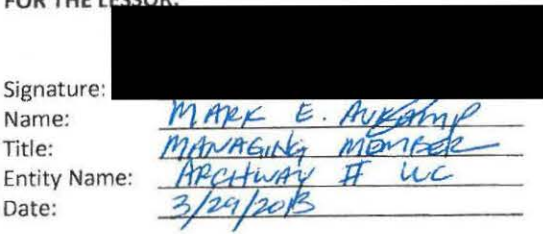 FOR THE LESSOR:
Signature:
Name: MARK E. AUKAMP
Title: MANAGING MEMBER
Entity Name: ARCHWAY II LLC
Date: 3/29/2013